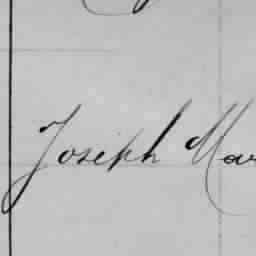 Joseph Mar